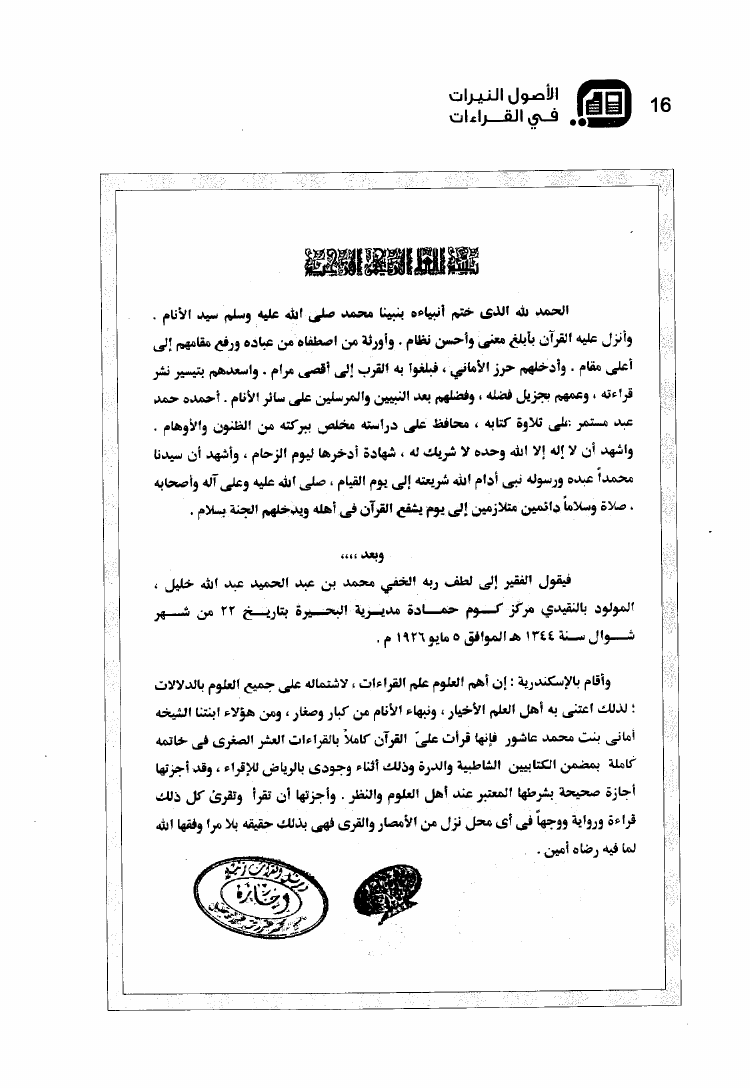 16
الأصول النيرات
في القـــراءات
الحمد لله الذى ختم أنبياءه بنبينا محمد صلى الله عليه وسلم سيد الأنام .
وأنزل عليه القرآن بأبلغ معنى وأحسن نظام . وأورثة من اصطفاه من عباده ورفع مقامهم إلى
أعلى مقام . وأدخلهم حرز الأمانى ، فبلغوا به القرب إلى أقصى مرام . واسعدهم بتيسير نشر
قراءته ، وعمهم بجزيل فضله ، وفضلهم بعد النبيين والمرسلين على سائر الأنام . أحمده حمد
عبد مستمر على تلاوة كتابه ، محافظ على دراسته مخلص ببركته من الظنون والأوهام .
واشهد أن لا إله إلا الله وحده لا شريك له ، شهادة أدخرها ليوم الزحام ، وأشهد أن سيدنا
محمداً عبده ورسوله نبى أدام الله شريعته إلى يوم القيام ، صلى الله عليه وعلى آله وأصحابه
، صلاة وسلاماً دائمين متلازمين إلى يوم يشفع القرآن فى أهله ويدخلهم الجنة بسلام .
وبعد ،،،،
فيقول الفقير إلى لطف ربه الخفي محمد بن عبد الحميد عبد الله خليل ،
المولود بالنقيدي مركز كـــوم حمـــادة مديـــرية البحـــيرة بتاريـــخ ٢٢ من شـــهر
شـــوال سـنة ١٣٤٤ هـ الموافق ٥ مايو ١٩٢٦ م .
وأقام بالإسكندرية : إن أهم العلوم علم القراءات ، لاشتماله على جميع العلوم بالدلالات
؛ لذلك اعتنى به أهل العلم الأخيار ، ونبهاء الأنام من كبار وصغار ، ومن هؤلاء ابنتنا الشيخه
أمانى بنت محمد عاشور فإنها قرأت علىّ القرآن كاملاً بالقراءات العشر الصغرى فى خاتمه
كاملة بمضمن الكتابيين الشاطبية والدرة وذلك أثناء وجودى بالرياض للإقراء ، وقد أجزتها
أجازة صحيحة بشرطها المعتبر عند أهل العلوم والنظر . وأجزتها أن تقرأ وتقرئ كل ذلك
قراءة ورواية ووجهاً فى أى محل نزل من الأمصار والقرى فهى بذلك حقيقه بلا مرا وفقها الله
لما فيه رضاه أمين .
إجازة